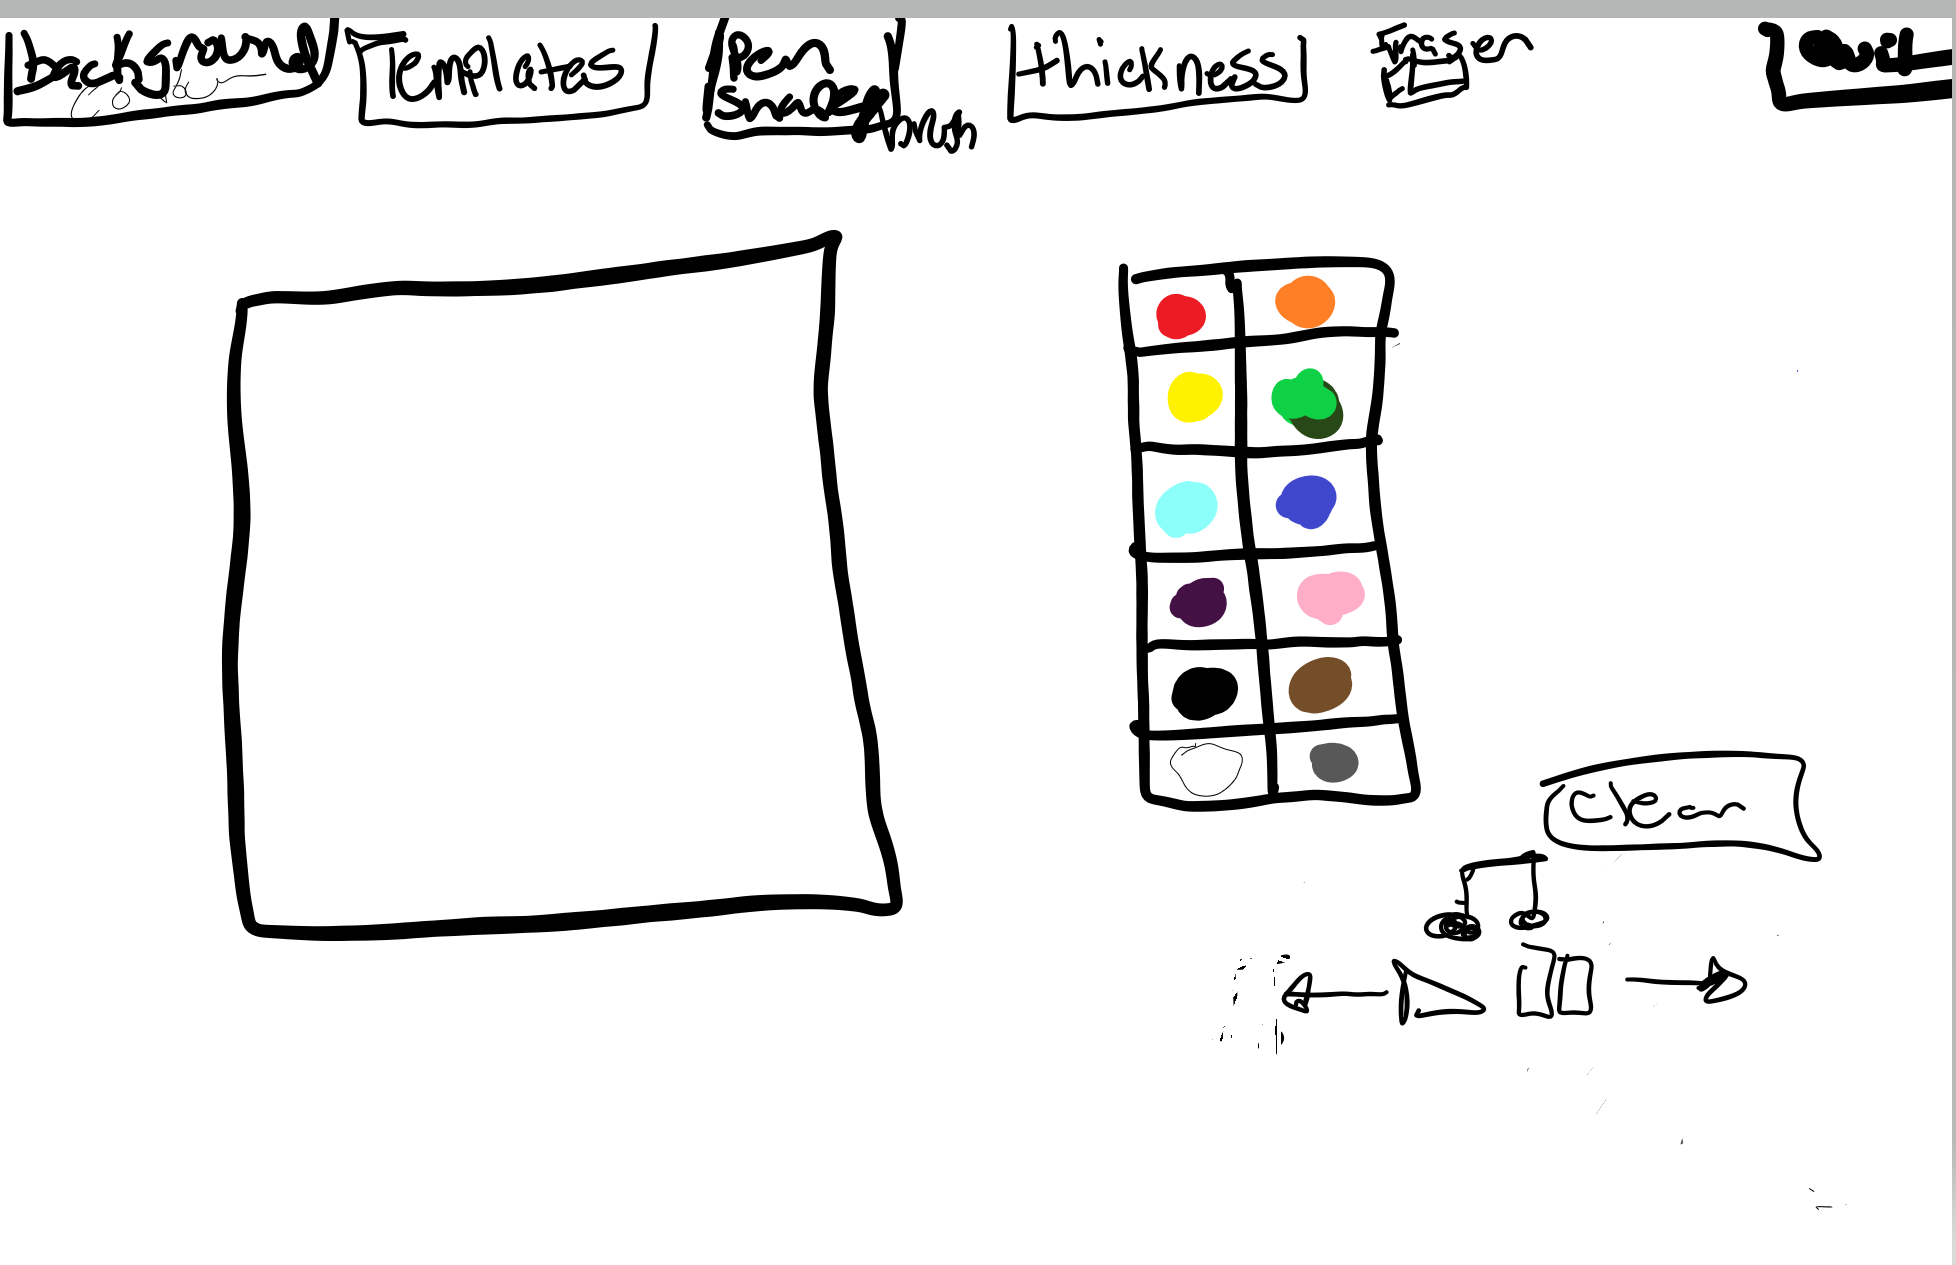 background
Templates
Pen
brush
thickness
Eraser
Quit
clear